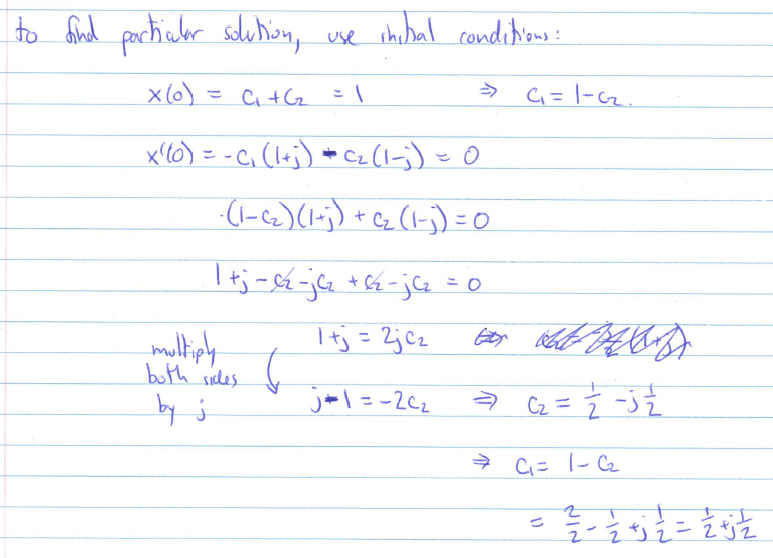 to find particular solution, use initial conditions:
x(0) = c₁ + c₂ = 1 ⇒ c₁ = 1 - c₂.
x'(0) = -c₁(1+j) - c₂(1-j) = 0
(1-c₂)(1+j) + c₂(1-j) = 0
1+j - c₂ - jc₂ + c₂ - jc₂ = 0
1+j = 2jc₂
multiply
both sides
by j
j-1 = -2c₂ ⇒ c₂ = 1/2 - j 1/2
⇒ c₁ = 1 - c₂
= 2/2 - 1/2 + j 1/2 = 1/2 + j 1/2